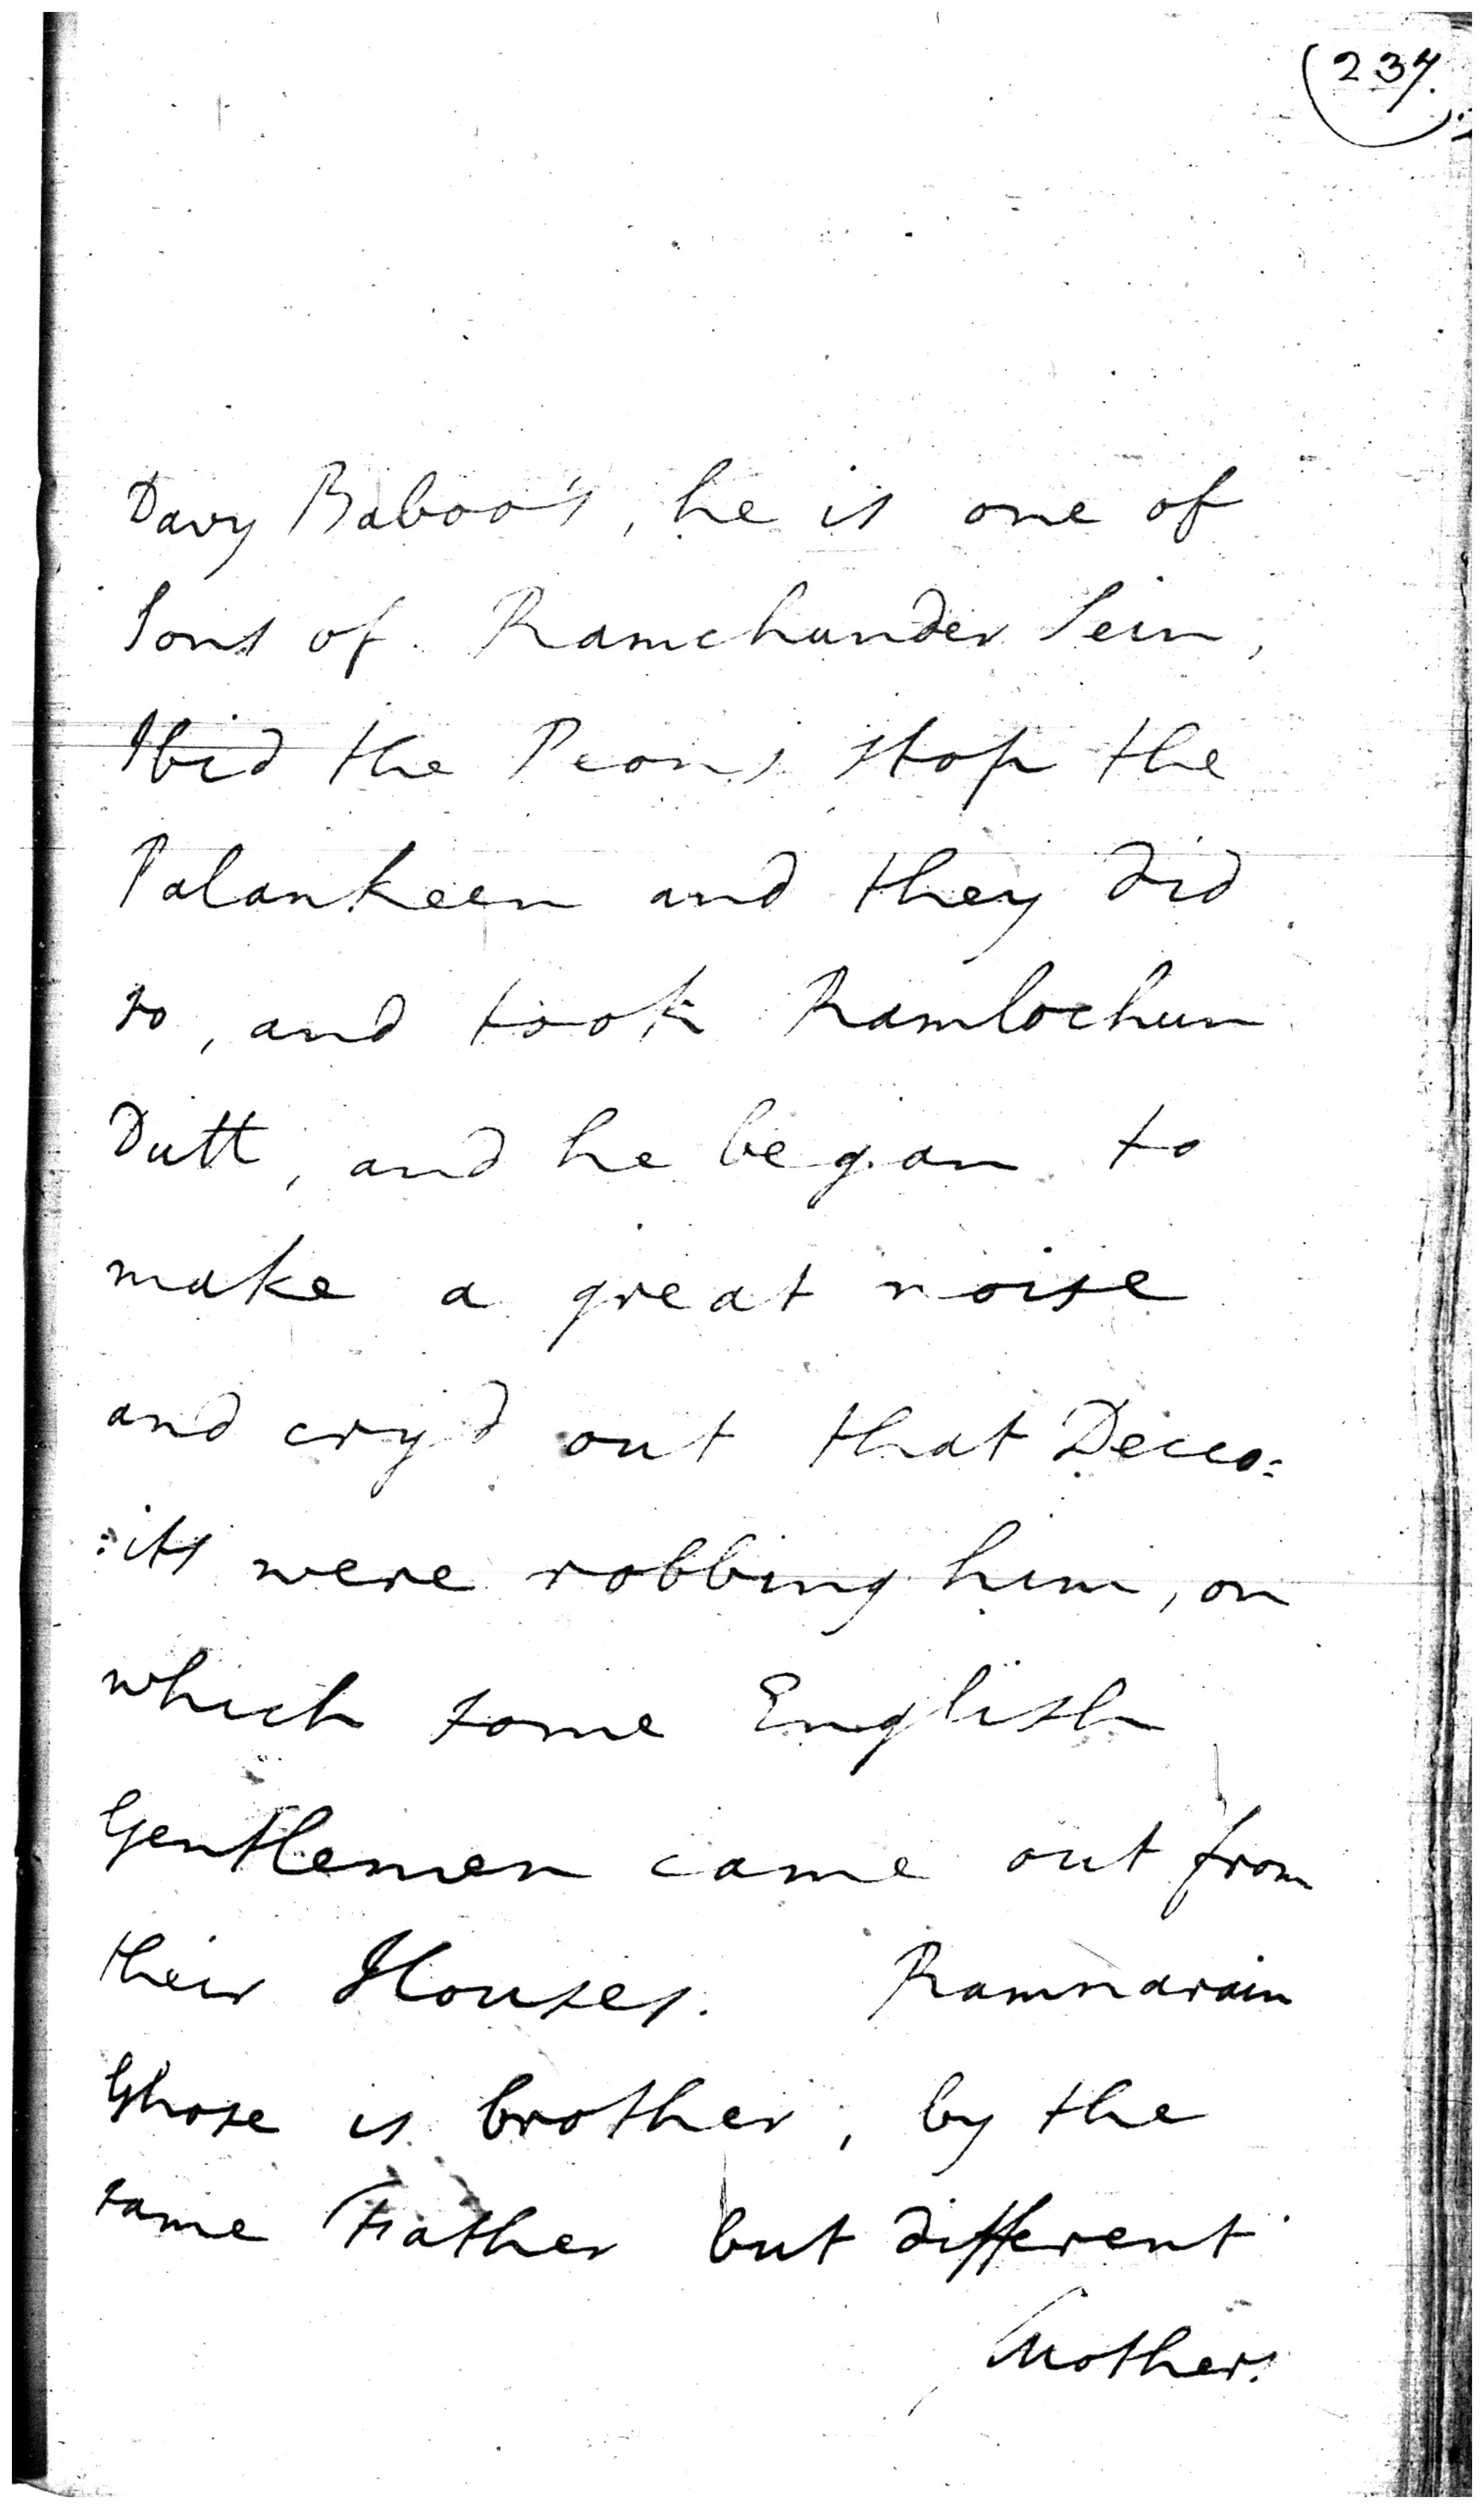 (237.
Davy Baboo's, he is one of
Sons of Ramchunder Sein,
I bid the Peons stop the
Palankeen and they did
so, and took Ramlochun
Dutt, and he began to
make a great noise
and cry'd out that Decco:
:its were robbing him, on
which some English
Gentlemen came out from
their Houses. Ramnarain
Ghose is brother, by the
same Father but different
Mothers.